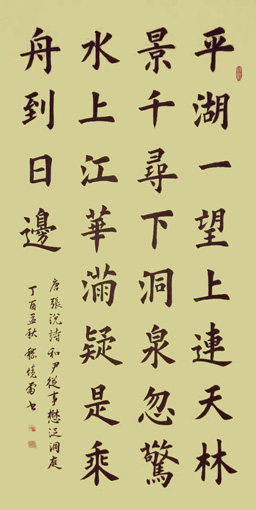 平湖一望上連天林
景千尋下洞泉忽驚
水上江華滿疑是乘
舟到日邊
唐張說詩和尹從事懋泛洞庭
丁酉孟秋